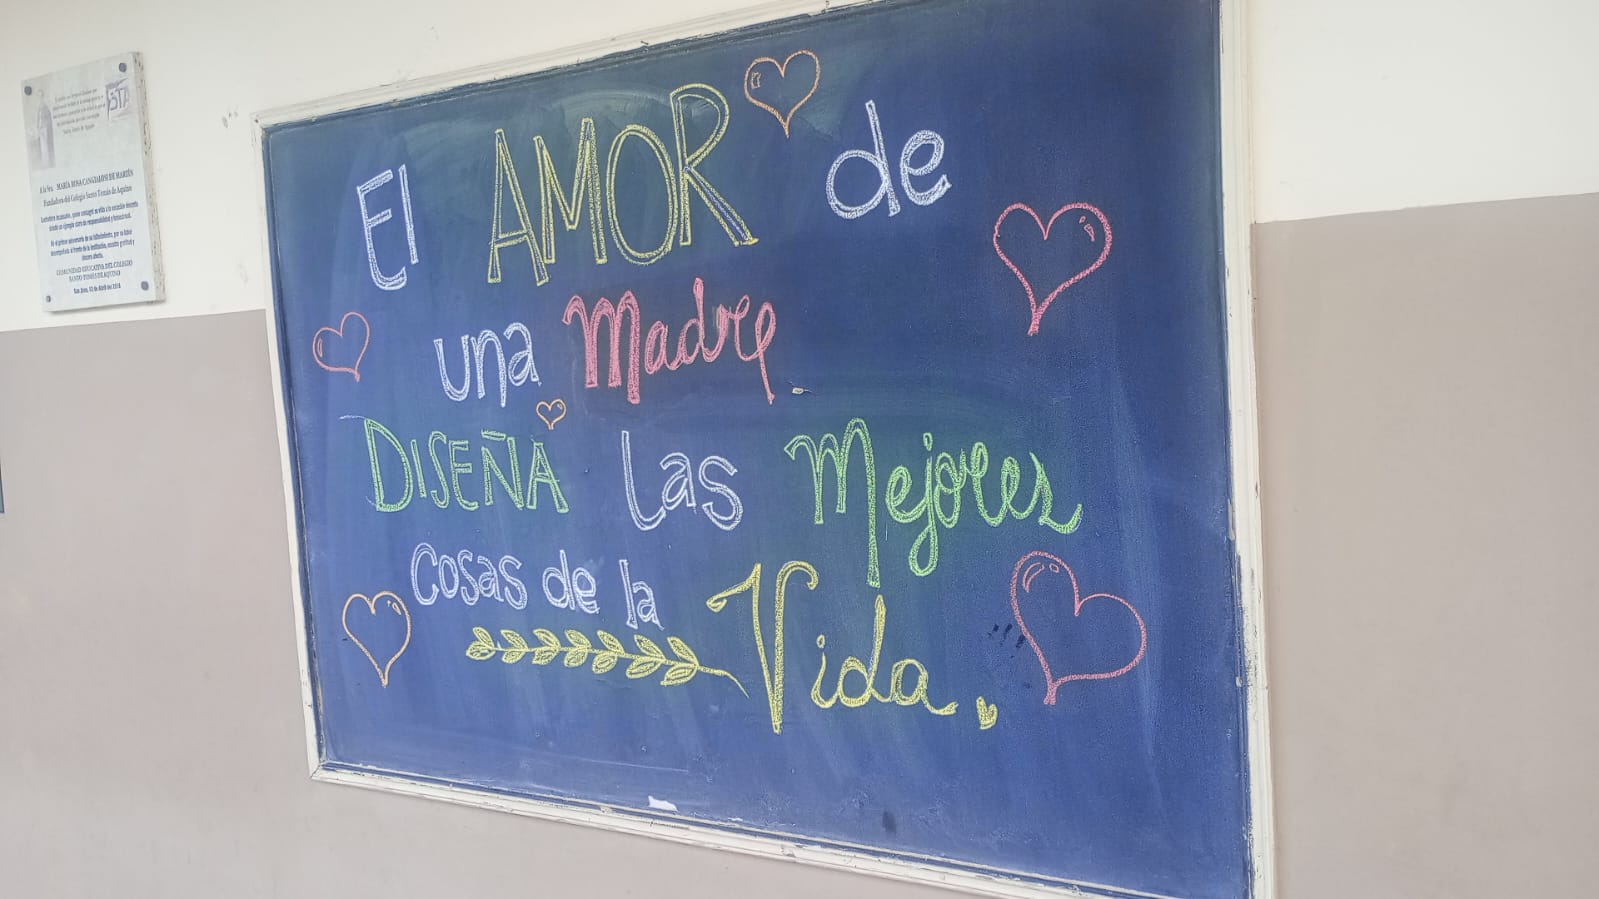 El AMOR de
una Madre
DISEÑA Las Mejores
Cosas de la
Vida.
STA
A la Sra. MARÍA ROSA CANGIALOSI DE MARTÍN
Fundadora del Colegio Santo Tomás de Aquino
COMUNIDAD EDUCATIVA DEL COLEGIO
SANTO TOMÁS DE AQUINO